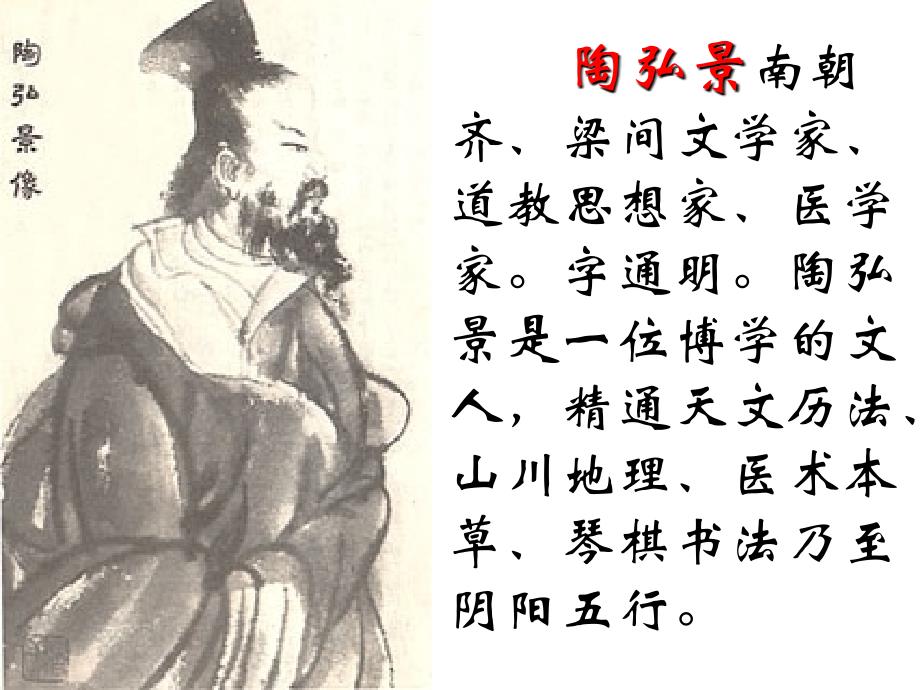 陶弘景像
陶弘景南朝
齐、梁间文学家、
道教思想家、医学
家。字通明。陶弘
景是一位博学的文
人，精通天文历法、
山川地理、医术本
草、琴棋书法乃至
阴阳五行。